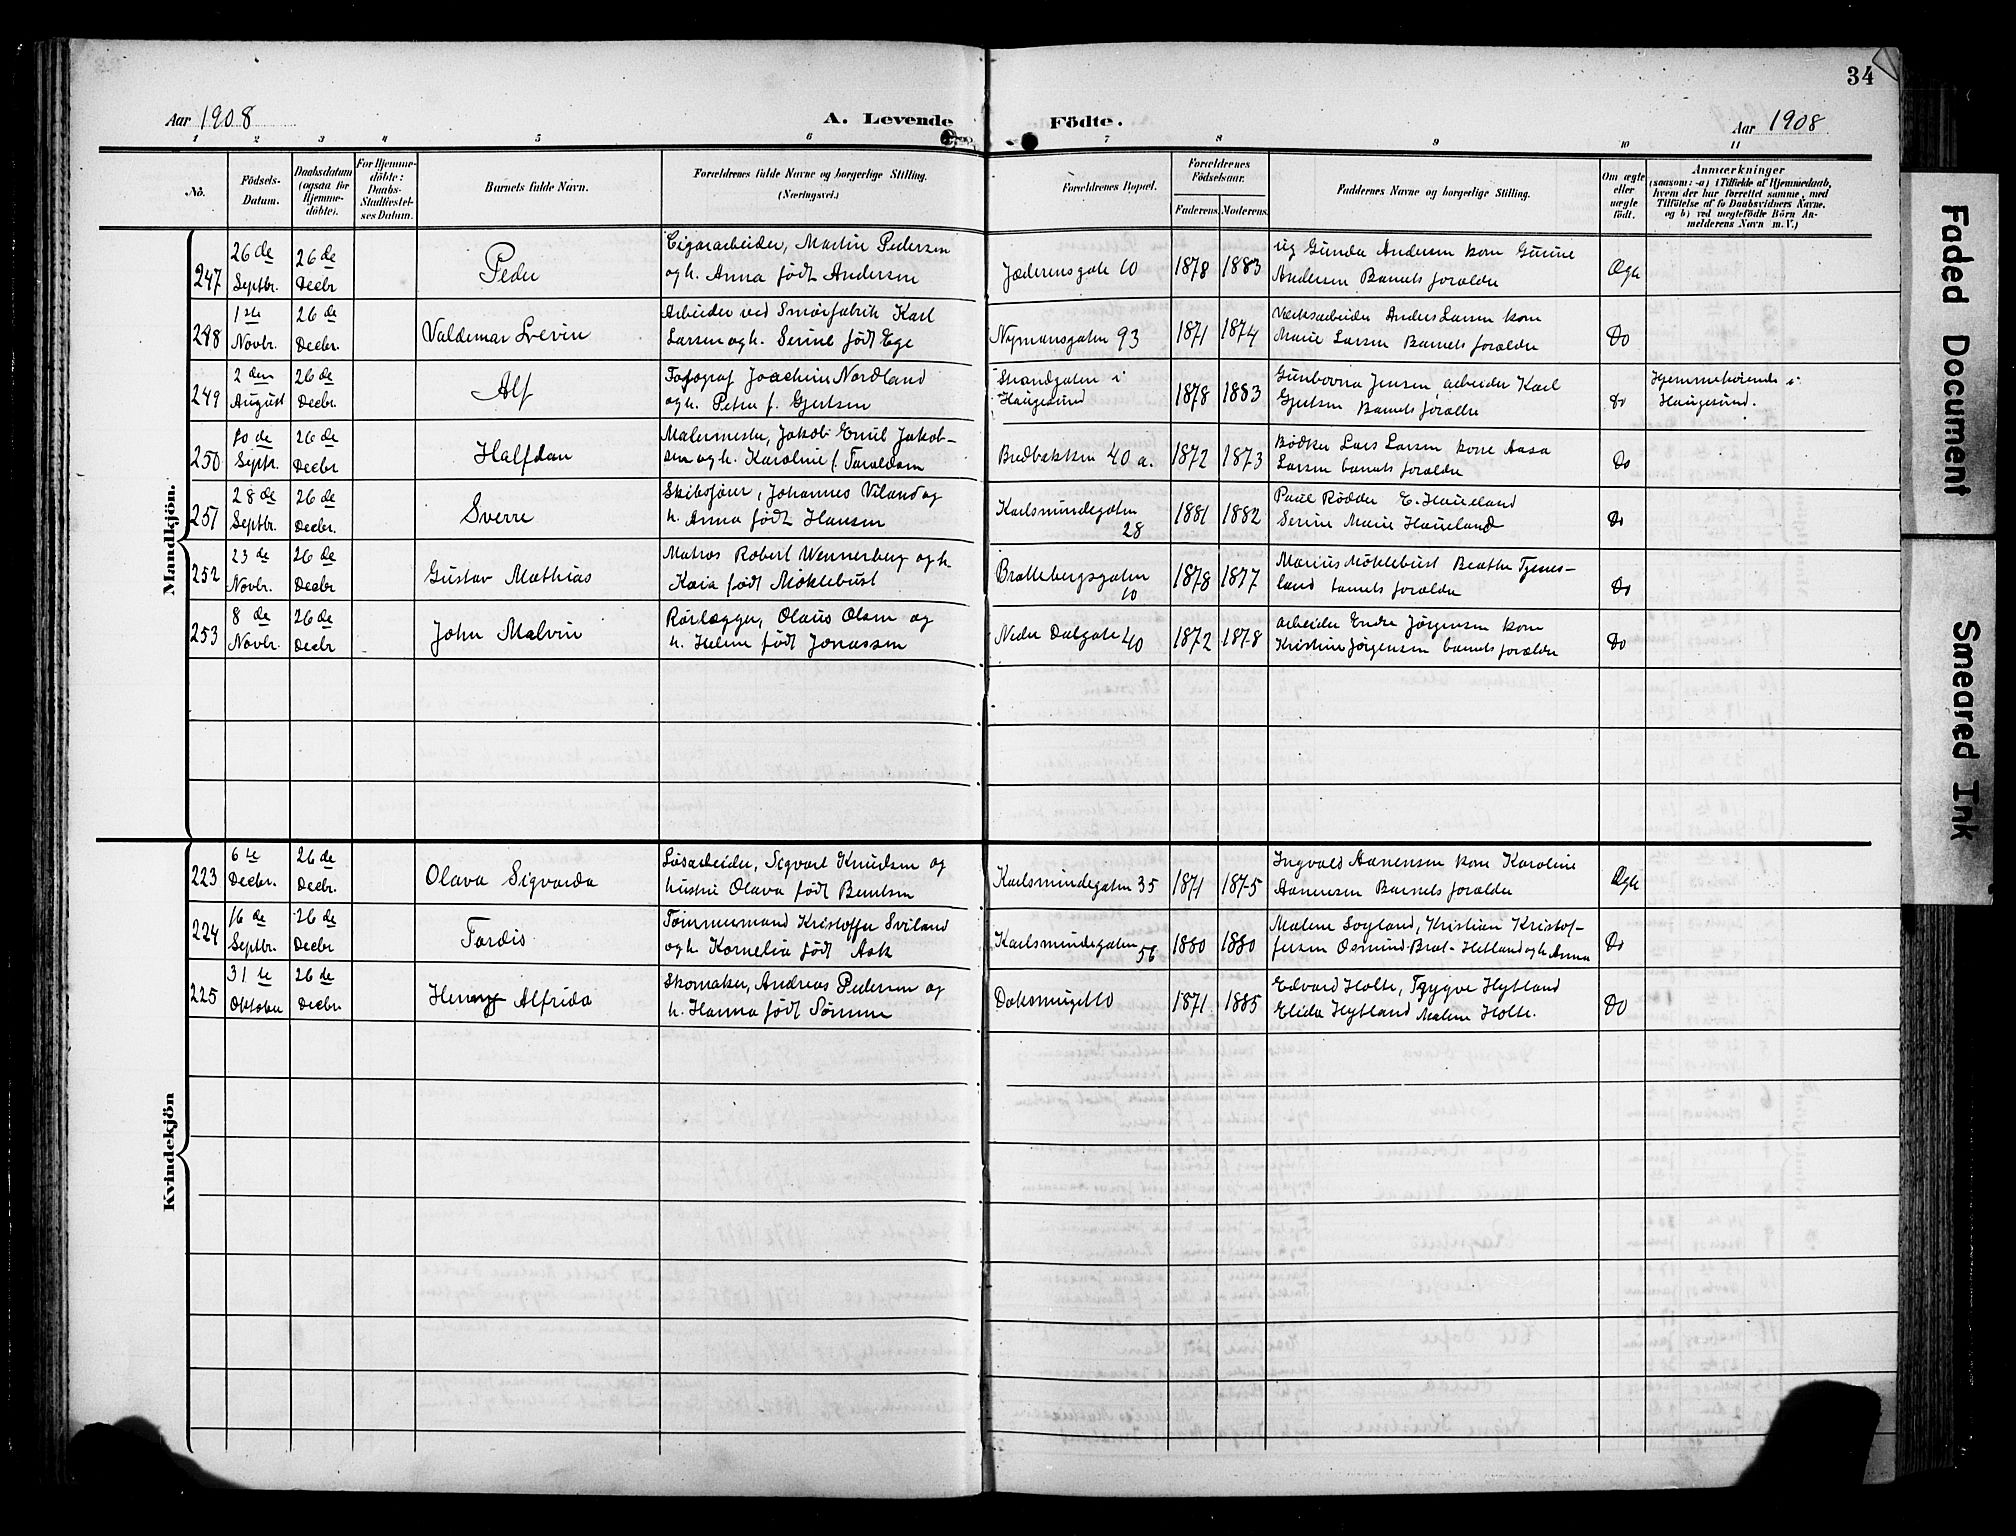 34
Aar 1908
A. Levende Födte.
Aar 1908
1 2 3 4 5 6 7 8 9 10 11
No.
Födsels-Datum.
Daabsdatum (ogsaa for Hjemmedöbte).
For Hjemmedöbte: Daabs-Stadfæstelses Datum.
Barnets fulde Navn.
Forældrenes fulde Navne og borgerlige Stilling. (Næringsvei.)
Forældrenes Bopæl.
Forældrenes Födselsaar.
Faderens. Moderens.
Faddernes Navne og borgerlige Stilling.
Om ægte eller uægte födt.
Anmærkninger
(saasom: a) i Tilfælde af Hjemmedaab, hvem der har forrettet samme, med Tilföielse af to Daabsvidners Navne, og b) ved uægtefödte Börn Anmelderens Navn m. V.)
Mandkjön.
247 26de Septbr. 26de Decbr Peder Cigararbeider, Martin Pedersen og h. Anna født Andersen Jæderensgate 10 1878 1883 ug Gunda Andersen kone Gurine Andersen Barnets forældre Ægte
248 1ste Novbr. 26de Decbr. Valdemar Severin Arbeider ved Smørfabrik Karl Larsen og h. Serine født Ege Nymansgaten 93 1871 1874 Værksarbeider Anders Larsen kone Marie Larsen Barnets forældre Do
249 2den August 26de Decbr. Alf Fotograf Joachim Nordland og h. Petra f. Gjertsen Strandgaten i Haugesund 1878 1883 Jensen, arbeider Karl Gjertsen Barnets forældre Do Hjemmehørende i Haugesund.
250 10de Septr. 26de Decbr Halfdan Malermester, Jakob Emil Jakobsen og h. Karoline f. Taraldsen Bredbakken 40 a. 1872 1873 Bødker Lars Larsen kone Aasa Larsen barnets forældre Do
251 28de Septbr. 26de Decbr. Sverre Skibsfører, Johannes Viland og h. Anna født Hansen Karlsmindegaten 28 1881 1882 Paul Rødder E. Haueland Serine Marie Haueland Do
252 23de Novbr. 26de Decbr Gustav Mathias Matros Robert Wennerberg og h. Kaia født Møklebust Brattebergsgaten 10 1878 1877 Marius Møklebust Beathe Tjensland barnets forældre Do
253 8de Novbr. 26de Decbr John Malvin Rørlægger, Olaus Olsen og h. Helene født Jonassen Nedre Dalgate 40 1872 1878 Arbeider Endre Jørgensen kone Kristine Jørgensen barnets forældre Do
Kvindekjön
223 6te Decbr. 26de Decbr. Olava Sigvarda Løsarbeider, Sigvart Knudsen og hustru Olava født Berntsen Karlsmindegaten 35 1871 1875 Ingvald Aanensen kone Karoline Aanensen Barnets forældre Ægte
224 16de Septbr. 26de Decbr Tordis Tømmermand Kristoffer Sviland og h. Kornelia født Ask Karlsmindegaten 56 1880 1880 Malene Sogland, Kristian Kristoffersen Osmund Brat-Hetland og h. Anna Do
225 31te Oktober 26de Decbr. Henny Alfrida Skomaker, Andreas Pedersen og h. Hanna født Sømme Daksmuget 10 1871 1885 Edvard Holte, Trygve Hytland Elida Hytland Malene Holte. Do
Faded Document
Smeared Ink